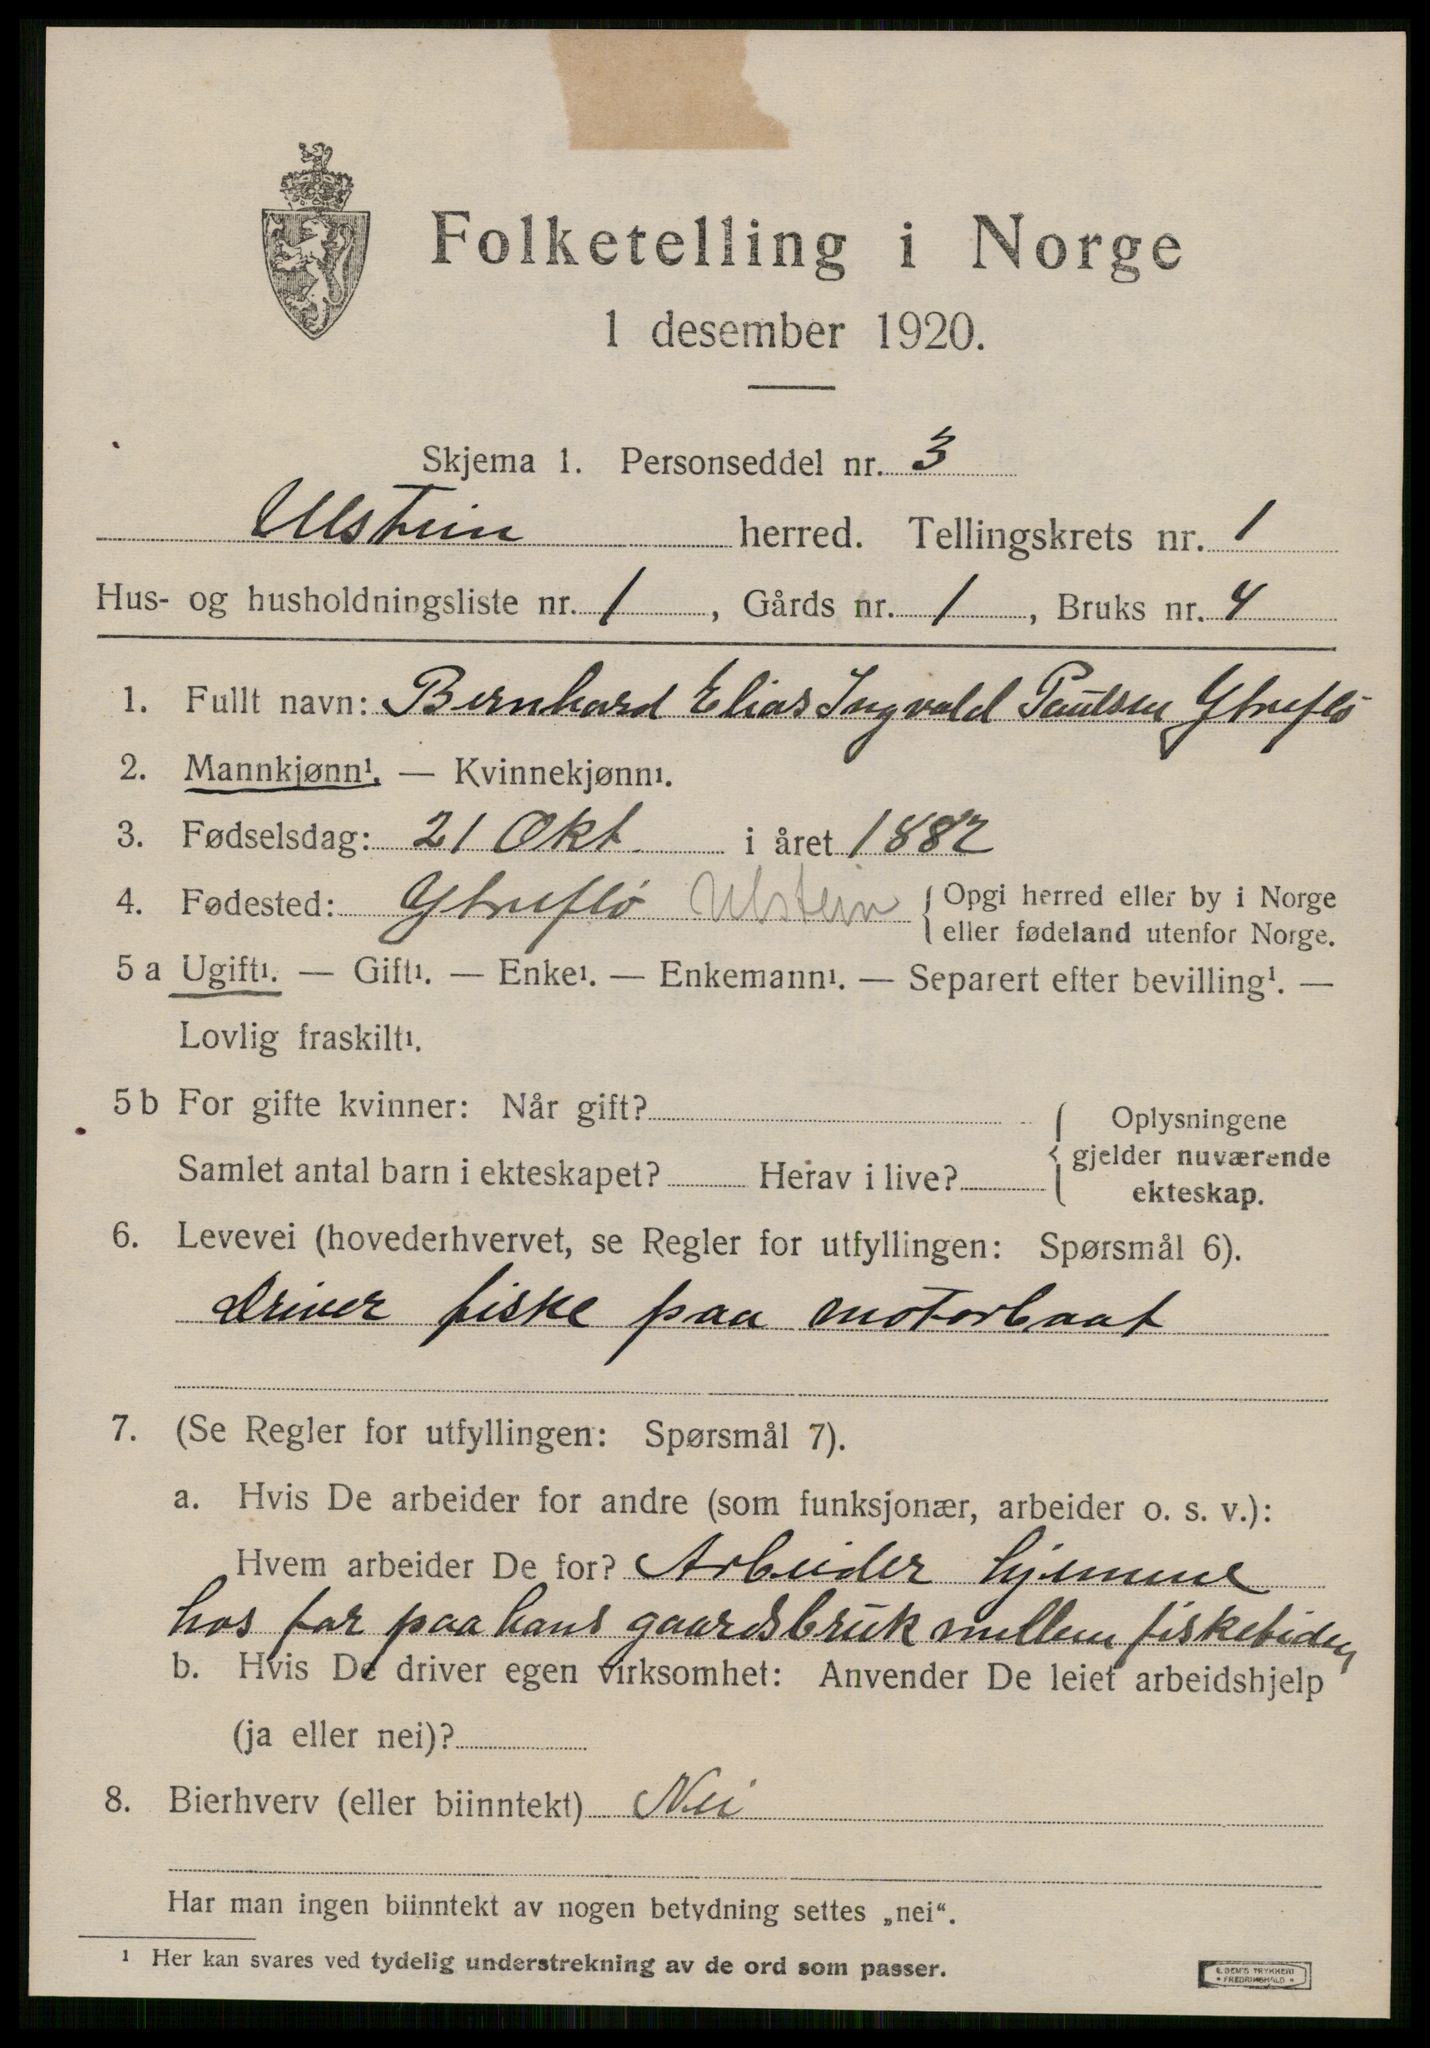 Folketelling i Norge
1 desember 1920.
Skjema 1. Personseddel nr. 3
Ulstein herred. Tellingskrets nr. 1
Hus- og husholdningsliste nr. 1, Gårds nr. 1, Bruks nr. 4
1. Fullt navn: Bernhard Elias Ingvald Paulsen Ytreflø
2. Mannkjønn¹. — Kvinnekjønn¹.
3. Fødselsdag: 21 Okt. i året 1882
4. Fødested: Ytreflø Ulstein { Opgi herred eller by i Norge
eller fødeland utenfor Norge.
5 a Ugift¹. — Gift¹. — Enke¹. — Enkemann¹. — Separert efter bevilling¹. —
Lovlig fraskilt¹.
5 b For gifte kvinner: Når gift?
Samlet antal barn i ekteskapet? Herav i live?
{ Oplysningene
gjelder nuværende
ekteskap.
6. Levevei (hovederhvervet, se Regler for utfyllingen: Spørsmål 6).
driver fiske paa motorbaat
7. (Se Regler for utfyllingen: Spørsmål 7).
a. Hvis De arbeider for andre (som funksjonær, arbeider o. s. v.):
Hvem arbeider De for? Arbeider hjemme
hos far paa hans gaardsbruk mellem fisketiden
b. Hvis De driver egen virksomhet: Anvender De leiet arbeidshjelp
(ja eller nei)?
8. Bierhverv (eller biinntekt) Nei
Har man ingen biinntekt av nogen betydning settes „nei“.
¹ Her kan svares ved tydelig understrekning av de ord som passer.
E. SEM'S TRYKKERI
• FREDRIKSHALD •